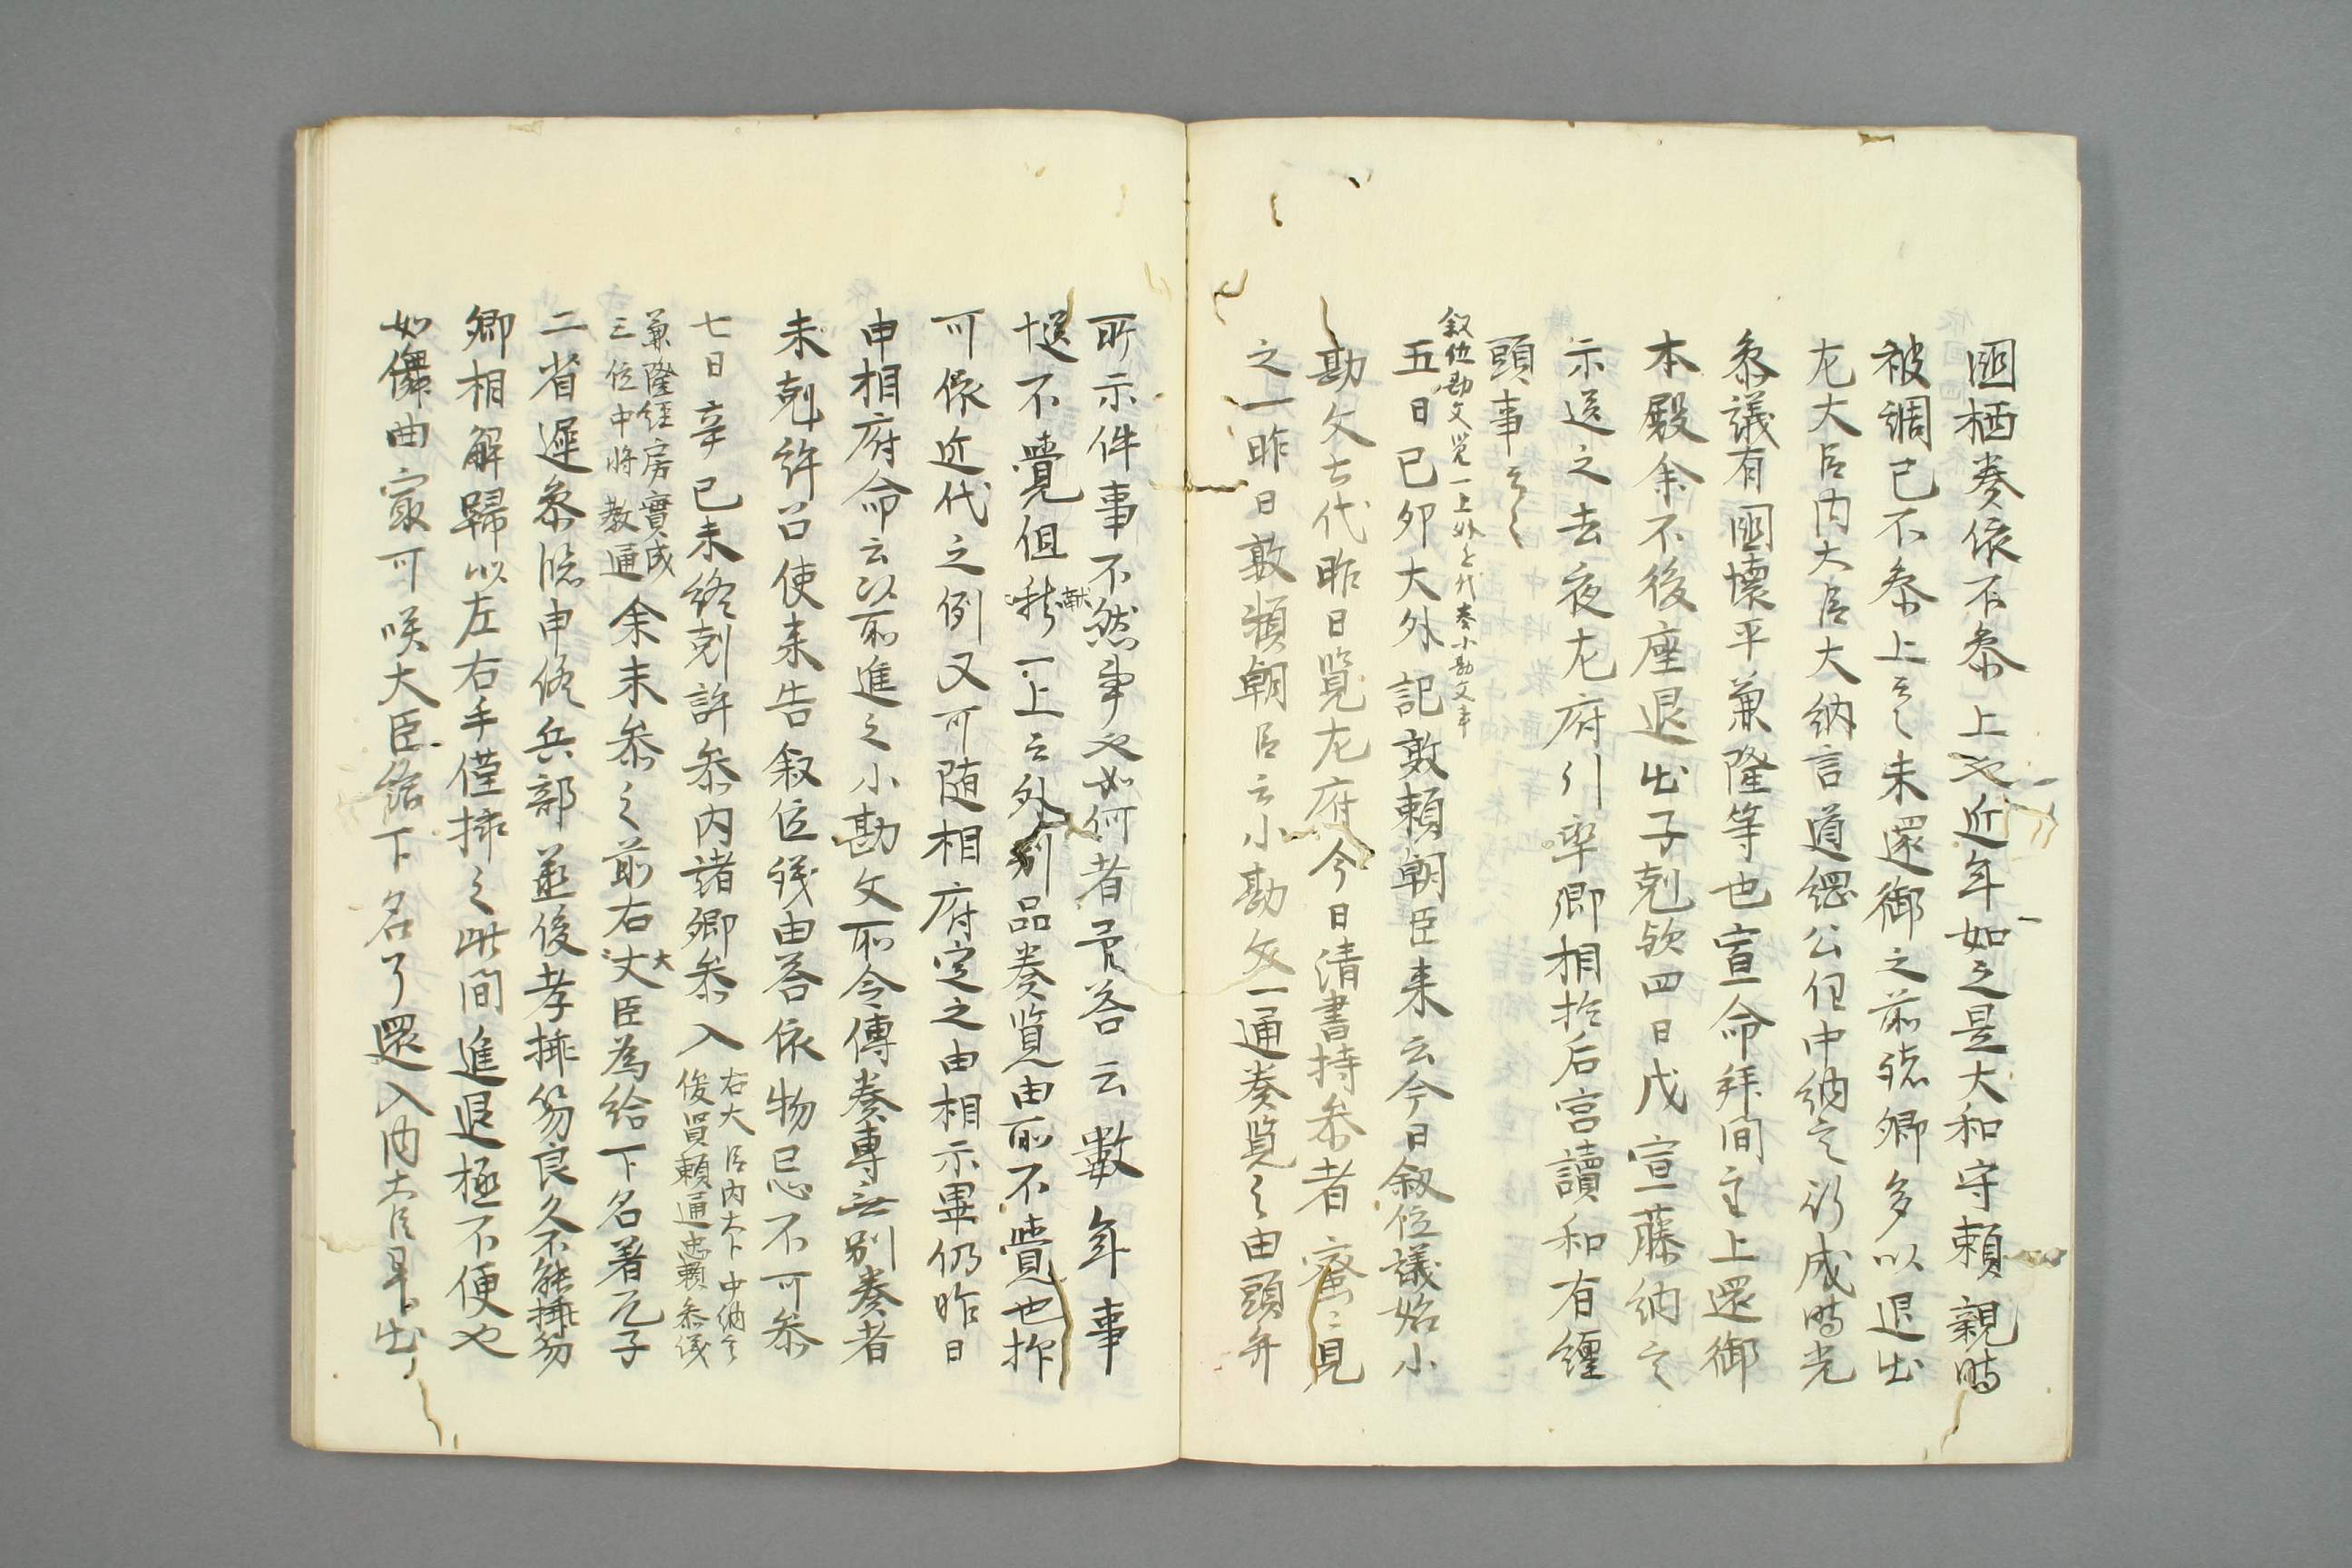 国栖奏依不参上也近年如之是大和守頼親時
被調已不参上云々未還御之前諸卿多以退出
左大臣内大臣大納言道綱公任中納言行成時光
参議有国懐平兼隆等也宣命拜間主上還御
本殿余不復座退出子剋欤四日戊宣藤納言
示送之去夜左府引率卿相於后宮讀和有纏
頭事云々
叙位勘文覧一上外古代奏小勘文事
五日己卯大外記敦頼朝臣来云今日叙位議始小
勘文古代昨日覧左府今日清書持参者密〻見
之一昨日敦頼朝臣云小勘文一通奏覧之由頭弁
所示件事不然事也如何者予答云數年事
送不覺但献一上之外別品奏覧由所不覺也抑
可依近代之例又可随相府定之由相示畢仍昨日
申相府命云以前進之小勘文所令傳奏專無別奏者
未剋許召使来告叙位議由答依物忌不可参
七日辛巳未終剋許参内諸卿参入右大臣内大下中納言
俊賢頼通忠頼参議
兼隆経房實成
三位中将教通余未参之前右大臣為給下名着兀子
二省遅参臨申終兵部丞後孝挿笏良久不能挿笏
卿相解歸以左右手僅挿之此間進退極不便也
如儛曲寂可咲大臣給下名了還入内大臣早出